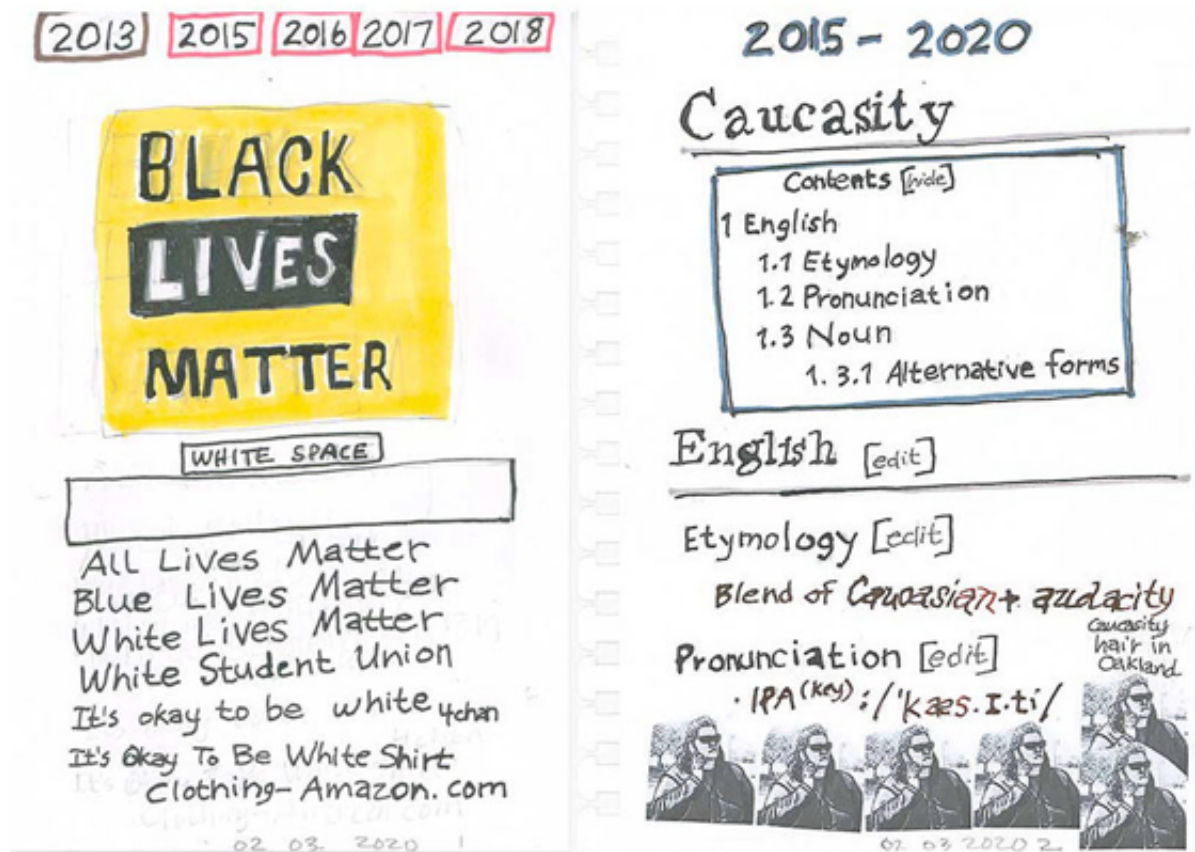 2013 2015 2016 2017 2018
BLACK
LIVES
MATTER
WHITE SPACE
All Lives Matter
Blue Lives Matter
White Lives Matter
White Student Union
It's okay to be white 4chan
It's Okay To Be White Shirt
Clothing-Amazon.com
02 03 2020 1
2015 - 2020
Caucasity
Contents [hide]
1 English
1.1 Etymology
1.2 Pronunciation
1.3 Noun
1.3.1 Alternative forms
English [edit]
Etymology [edit]
Blend of Caucasian + audacity
Pronunciation [edit]
• IPA(key): /ˈkæs.I.ti/
Caucasity
hair in
Oakland
02 03 2020 2